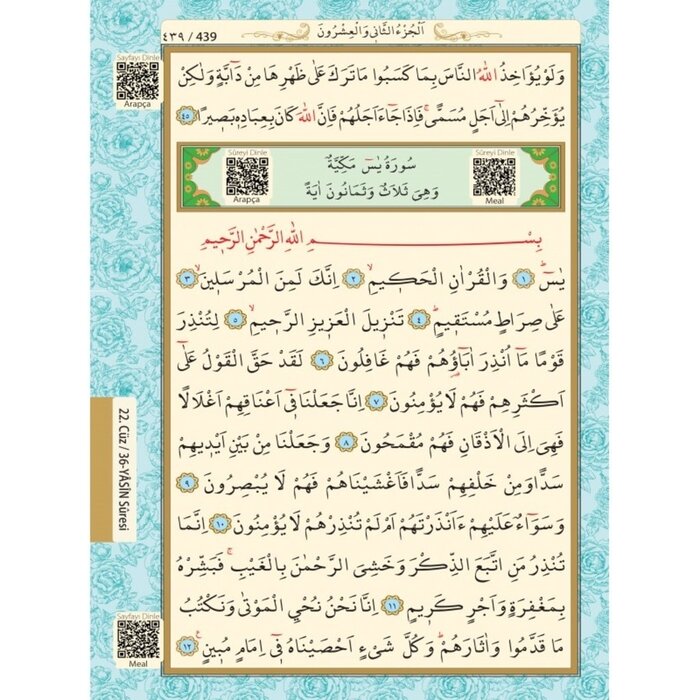 ٤٣٩ / 439
اَلْجُزْءُ الثَّانِى وَالْعِشْرُونَ
Sayfayı Dinle
Arapça
وَلَوْ يُؤَاخِذُ اللّٰهُ النَّاسَ بِمَا كَسَبُوا مَا تَرَكَ عَلٰى ظَهْرِهَا مِنْ دَٓابَّةٍ وَلٰكِنْ
يُؤَخِّرُهُمْ اِلٰٓى اَجَلٍ مُسَمًّىۚ فَاِذَا جَٓاءَ اَجَلُهُمْ فَاِنَّ اللّٰهَ كَانَ بِعِبَادِه۪ بَص۪يرًا ٤٥
Sûreyi Dinle
Arapça
سُورَةُ يٰسٓ مَكِّيَّةٌ
وَهِىَ ثَلَاثٌ وَثَمَانُونَ اٰيَةً
Sûreyi Dinle
Meal
بِسْمِ اللّٰهِ الرَّحْمٰنِ الرَّح۪يمِ
يٰسٓۜ ١ وَالْقُرْاٰنِ الْحَك۪يمِۙ ٢ اِنَّكَ لَمِنَ الْمُرْسَل۪ينَۙ ٣
عَلٰى صِرَاطٍ مُسْتَق۪يمٍۜ ٤ تَنْز۪يلَ الْعَز۪يزِ الرَّح۪يمِۙ ٥ لِتُنْذِرَ
قَوْمًا مَٓا اُنْذِرَ اٰبَٓاؤُ۬هُمْ فَهُمْ غَافِلُونَ ٦ لَقَدْ حَقَّ الْقَوْلُ عَلٰٓى
اَكْثَرِهِمْ فَهُمْ لَا يُؤْمِنُونَ ٧ اِنَّا جَعَلْنَا ف۪ٓى اَعْنَاقِهِمْ اَغْلَالًا
فَهِىَ اِلَى الْاَذْقَانِ فَهُمْ مُقْمَحُونَ ٨ وَجَعَلْنَا مِنْ بَيْنِ اَيْد۪يهِمْ
سَدًّا وَمِنْ خَلْفِهِمْ سَدًّا فَاَغْشَيْنَاهُمْ فَهُمْ لَا يُبْصِرُونَ ٩
وَسَوَٓاءٌ عَلَيْهِمْ ءَاَنْذَرْتَهُمْ اَمْ لَمْ تُنْذِرْهُمْ لَا يُؤْمِنُونَ ١٠ اِنَّمَا
تُنْذِرُ مَنِ اتَّبَعَ الذِّكْرَ وَخَشِىَ الرَّحْمٰنَ بِالْغَيْبِۚ فَبَشِّرْهُ
بِمَغْفِرَةٍ وَاَجْرٍ كَر۪يمٍ ١١ اِنَّا نَحْنُ نُحْيِ الْمَوْتٰى وَنَكْتُبُ
مَا قَدَّمُوا وَاٰثَارَهُمْۜ وَكُلَّ شَىْءٍ اَحْصَيْنَاهُ ف۪ٓى اِمَامٍ مُب۪ينٍ۟ ١٢
22. Cüz / 36-YÂSÎN Sûresi
Sayfayı Dinle
Meal